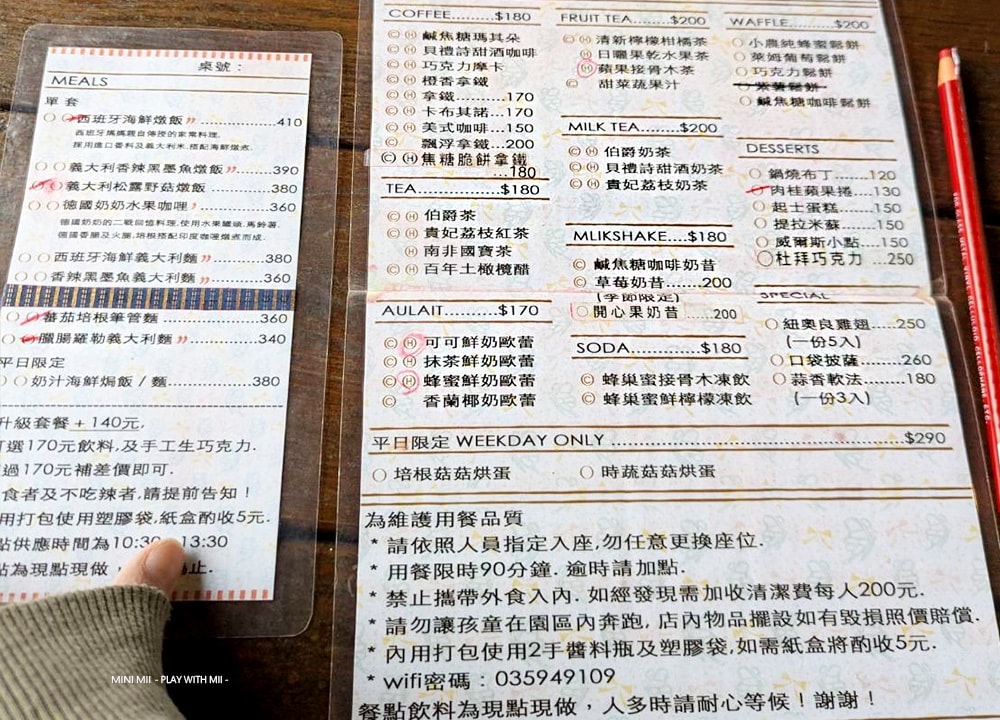 桌號：
MEALS
單套
西班牙海鮮燉飯 410
西班牙媽媽親自傳授的家常料理.
採用進口香料及義大利米.搭配海鮮燉煮.
義大利香辣黑墨魚燉飯 390
義大利松露野菇燉飯 380
德國奶奶水果咖哩 360
德國奶奶的二戰回憶料理.使用水果罐頭.馬鈴薯.
德國香腸及火腿.培根搭配印度咖哩燉煮而成.
西班牙海鮮義大利麵 380
香辣黑墨魚義大利麵 360
蕃茄培根筆管麵 360
臘腸羅勒義大利麵 340
平日限定
奶汁海鮮焗飯 / 麵 380
升級套餐 + 140元,
可選170元飲料,及手工生巧克力.
過170元補差價即可.
食者及不吃辣者,請提前告知！
用打包使用塑膠袋,紙盒酌收5元.
點供應時間為10:30 13:30
點為現點現做， 止.
COFFEE........$180
ⒸⒽ 鹹焦糖瑪其朵
ⒸⒽ 貝禮詩甜酒咖啡
ⒸⒽ 巧克力摩卡
ⒸⒽ 橙香拿鐵
ⒸⒽ 拿鐵..........170
ⒸⒽ 卡布其諾....170
ⒸⒽ 美式咖啡....150
Ⓒ 飄浮拿鐵....200
ⒸⒽ 焦糖脆餅拿鐵
...180
TEA..............$180
ⒸⒽ 伯爵茶
ⒸⒽ 貴妃荔枝紅茶
Ⓗ 南非國寶茶
ⒸⒽ 百年土橄欖醋
AULAIT.........$170
ⒸⒽ 可可鮮奶歐蕾
ⒸⒽ 抹茶鮮奶歐蕾
ⒸⒽ 蜂蜜鮮奶歐蕾
Ⓒ 香蘭椰奶歐蕾
FRUIT TEA....$200
ⒸⒽ 清新檸檬柑橘茶
Ⓗ 日曬果乾水果茶
Ⓗ 蘋果接骨木茶
Ⓒ 甜菜蔬果汁
MILK TEA......$200
ⒸⒽ 伯爵奶茶
ⒸⒽ 貝禮詩甜酒奶茶
ⒸⒽ 貴妃荔枝奶茶
MLIKSHAKE....$180
Ⓒ 鹹焦糖咖啡奶昔
Ⓒ 草莓奶昔.......200
(季節限定)
開心果奶昔 .....200
SODA...........$180
Ⓒ 蜂巢蜜接骨木凍飲
Ⓒ 蜂巢蜜鮮檸檬凍飲
WAFFLE......$200
小農純蜂蜜鬆餅
萊姆葡萄鬆餅
巧克力鬆餅
鹹焦糖咖啡鬆餅
DESSERTS
鍋燒布丁......120
肉桂蘋果捲...130
起士蛋糕......150
提拉米蘇......150
威爾斯小點...150
杜拜巧克力 ..250
SPECIAL
紐奧良雞翅....250
(一份5入)
口袋披薩........260
蒜香軟法........180
(一份3入)
平日限定 WEEKDAY ONLY ........$290
培根菇菇烘蛋 時蔬菇菇烘蛋
為維護用餐品質
* 請依照人員指定入座,勿任意更換座位.
* 用餐限時90分鐘. 逾時請加點.
* 禁止攜帶外食入內. 如經發現需加收清潔費每人200元.
* 請勿讓孩童在園區內奔跑, 店內物品擺設如有毀損照價賠償.
* 內用打包使用2手醬料瓶及塑膠袋,如需紙盒將酌收5元.
* wifi密碼：035949109
餐點飲料為現點現做，人多時請耐心等候！謝謝！
MINI MII - PLAY WITH MII -